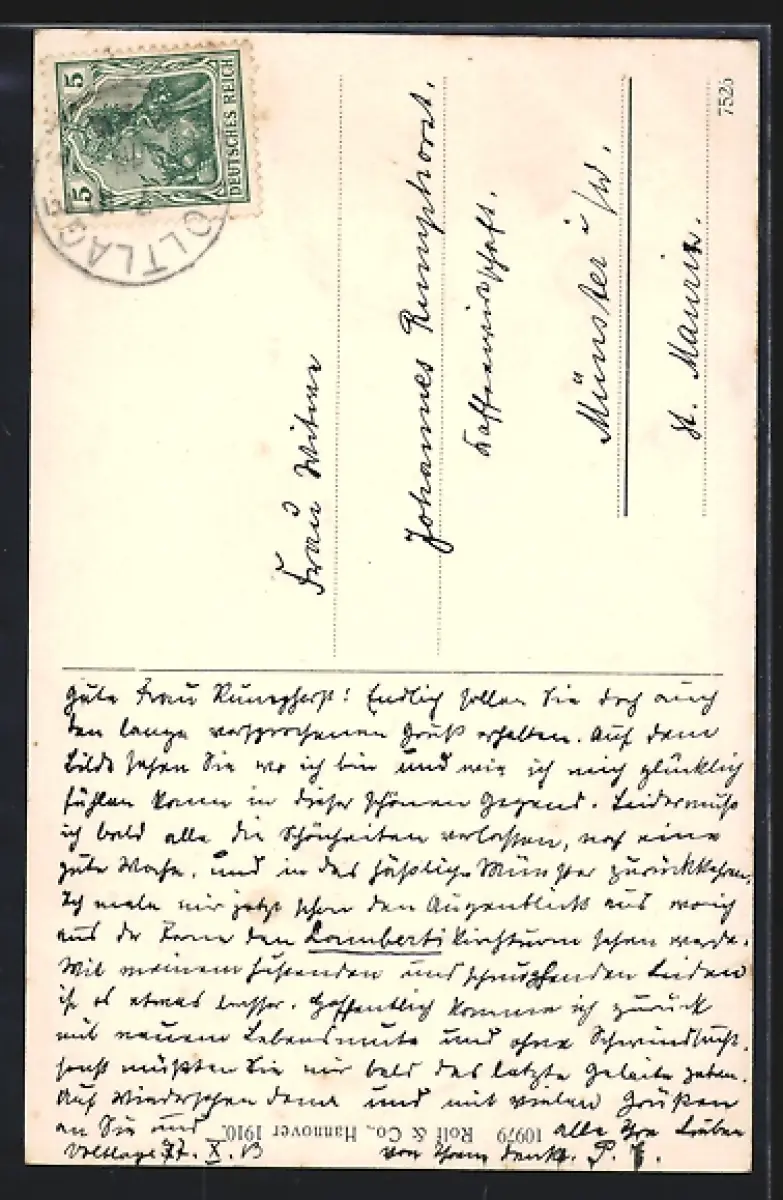 5 5
DEUTSCHES REICH
OLTLAG
7525
Frau Witwe
Johannes Rumphorst.
Kaffeewirtschaft.
Münster i/W.
St. Mauritz.
Gute Frau Rumphorst! Endlich sollen Sie doch auch
den lange versprochenen Gruß erhalten. Auf dem
Bilde sehen Sie wo ich bin und wie ich mich glücklich
fühlen kann in dieser schönen Gegend. Leider muß
ich bald alle die Schönheiten verlassen, noch eine
gute Woche, und in das häßliche Münster zurückkehren.
Ich male mir jetzt schon den Augenblick aus wo ich
aus der Ferne den Lamberti Kirchturm sehen werde.
Mit meinem hustenden und schnupfenden Leiden
ist es etwas besser. Hoffentlich komme ich zurück
mit neuem Lebensmute und ohne Schwindsucht,
sonst müßten Sie mir bald das letzte Geleite geben.
Auf Wiedersehen denn und mit vielen Grüßen
an Sie und alle Ihre Lieben
Voltlage X. 13 von Ihrem dankb.
10979 Rolf & Co., Hannover 1910.